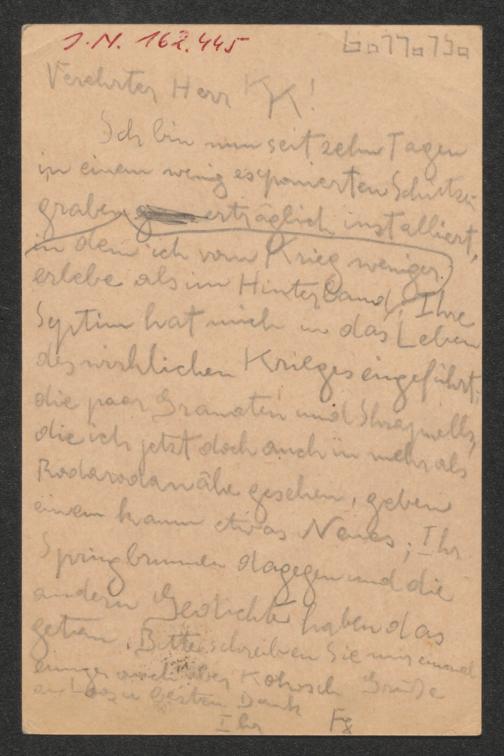 I.N. 162.445
Verehrter Herr KK!
Ich bin nun seit zehn Tagen
in einem wenig exponierten Schützen
graben erträglich installiert,
in dem ich vom Krieg weniger
erlebe als im Hinterland. Ihre
hat mich in das Leben
des wirklichen Krieges eingeführt;
die paar Granaten und Shrapnells,
die ich jetzt doch auch in mehr als
Rodarodanähe gesehen, geben
einem kaum etwas Neues; Ihr
Springbrunnen dagegen und die
andern Gedichte haben das
getan. Bitte schreiben Sie mir einmal
einiges auch über Grüße
besten Dank
Ihr